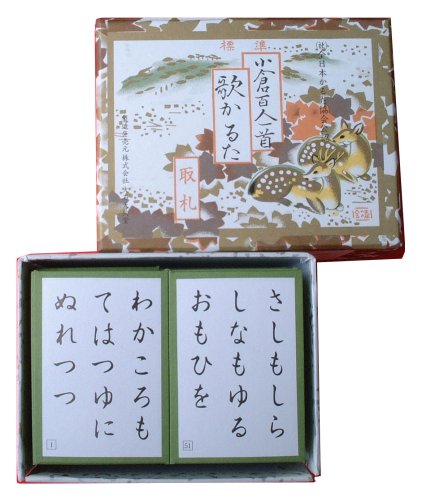 標準
(社)全日本かるた協会
小倉百人一首
歌かるた
取札
さしもしら
しなもゆる
おもひを
51
わかころも
てはつゆに
ぬれつつ
1